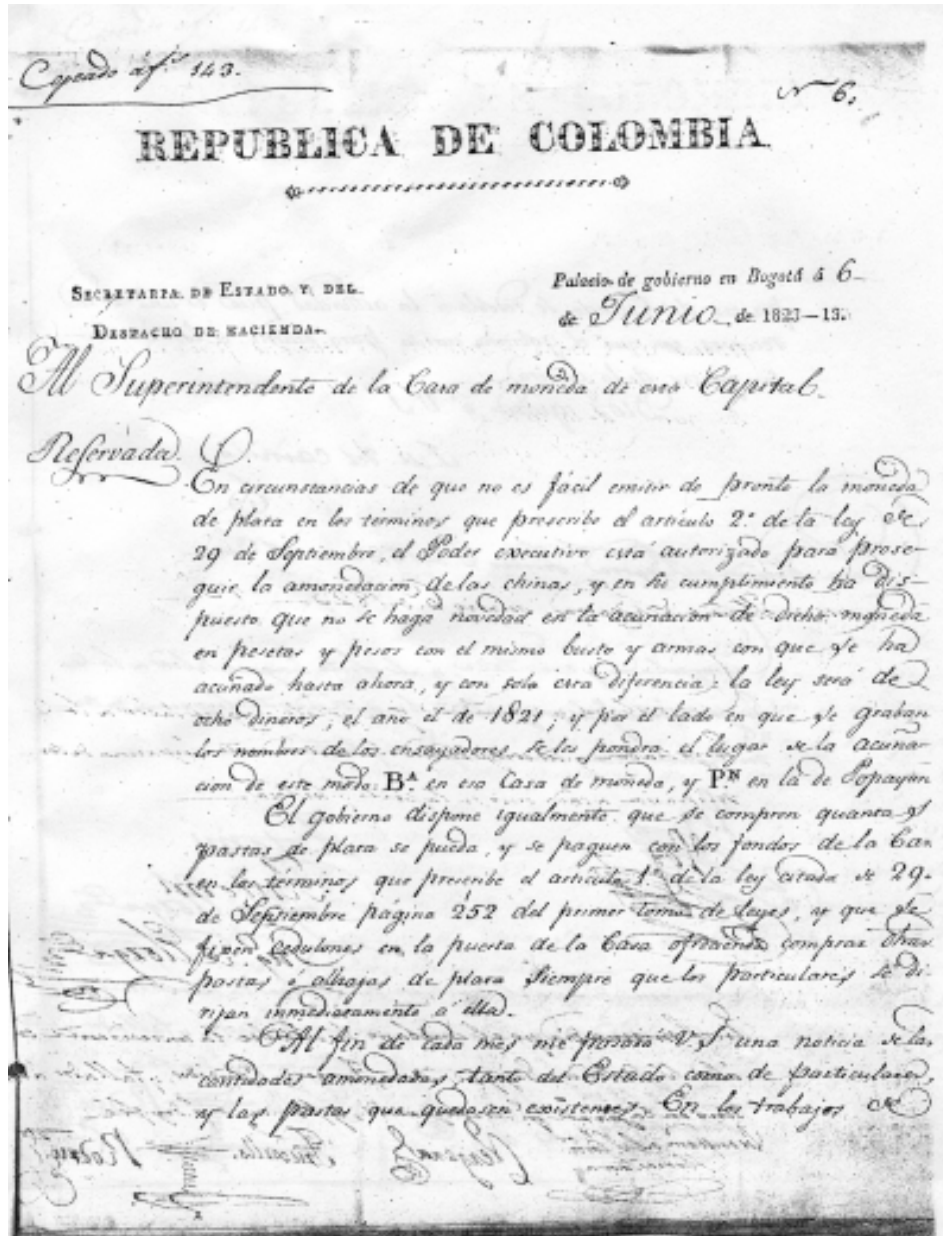 Copeado á f.s 143.
Nº 6.
REPUBLICA DE COLOMBIA
SECRETARIA DE ESTADO Y DEL
DESPACHO DE HACIENDA.
Palacio de gobierno en Bogotá á 6
de Junio de 1823-13.
Al Superintendente de la Casa de moneda de esta Capital.
Reservada.
En circunstancias de que no es facil emitir de pronto la moneda
de plata en los terminos que prescribe el articulo 2.º de la ley de
29 de Septiembre, el Poder executivo está autorizado para prose-
guir la amonedacion de las chinas, y en su cumplimiento ha dis-
puesto que no se haga novedad en la acuñacion de dicha moneda
en pesetas y pesos con el mismo busto y armas con que se ha
acuñado hasta ahora, y con sola esta diferencia: la ley será de
ocho dineros; el año el de 1821; y por el lado en que se graban
los nombres de los ensayadores se les pondrá el lugar de la acuña-
cion de este modo Bᴬ. en esa Casa de moneda, y Pᴺ en la de Popayan
El gobierno dispone igualmente que se compren quantas
pastas de plata se pueda, y se paguen con los fondos de la Casa
en los terminos que prescribe el articulo 1º de la ley citada de 29.
de Septiembre página 252 del primer tomo de leyes, y que se
fixen cedulones en la puerta de la Casa ofreciendo comprar otras
pastas ó alhajas de plata siempre que los particulares se di-
rijan inmediatamente á ella.
Al fin de cada mes me pasará V.S. una noticia de las
cantidades amonedadas, tanto del Estado como de particulares,
y las pastas que quedasen existentes. En los trabajos de